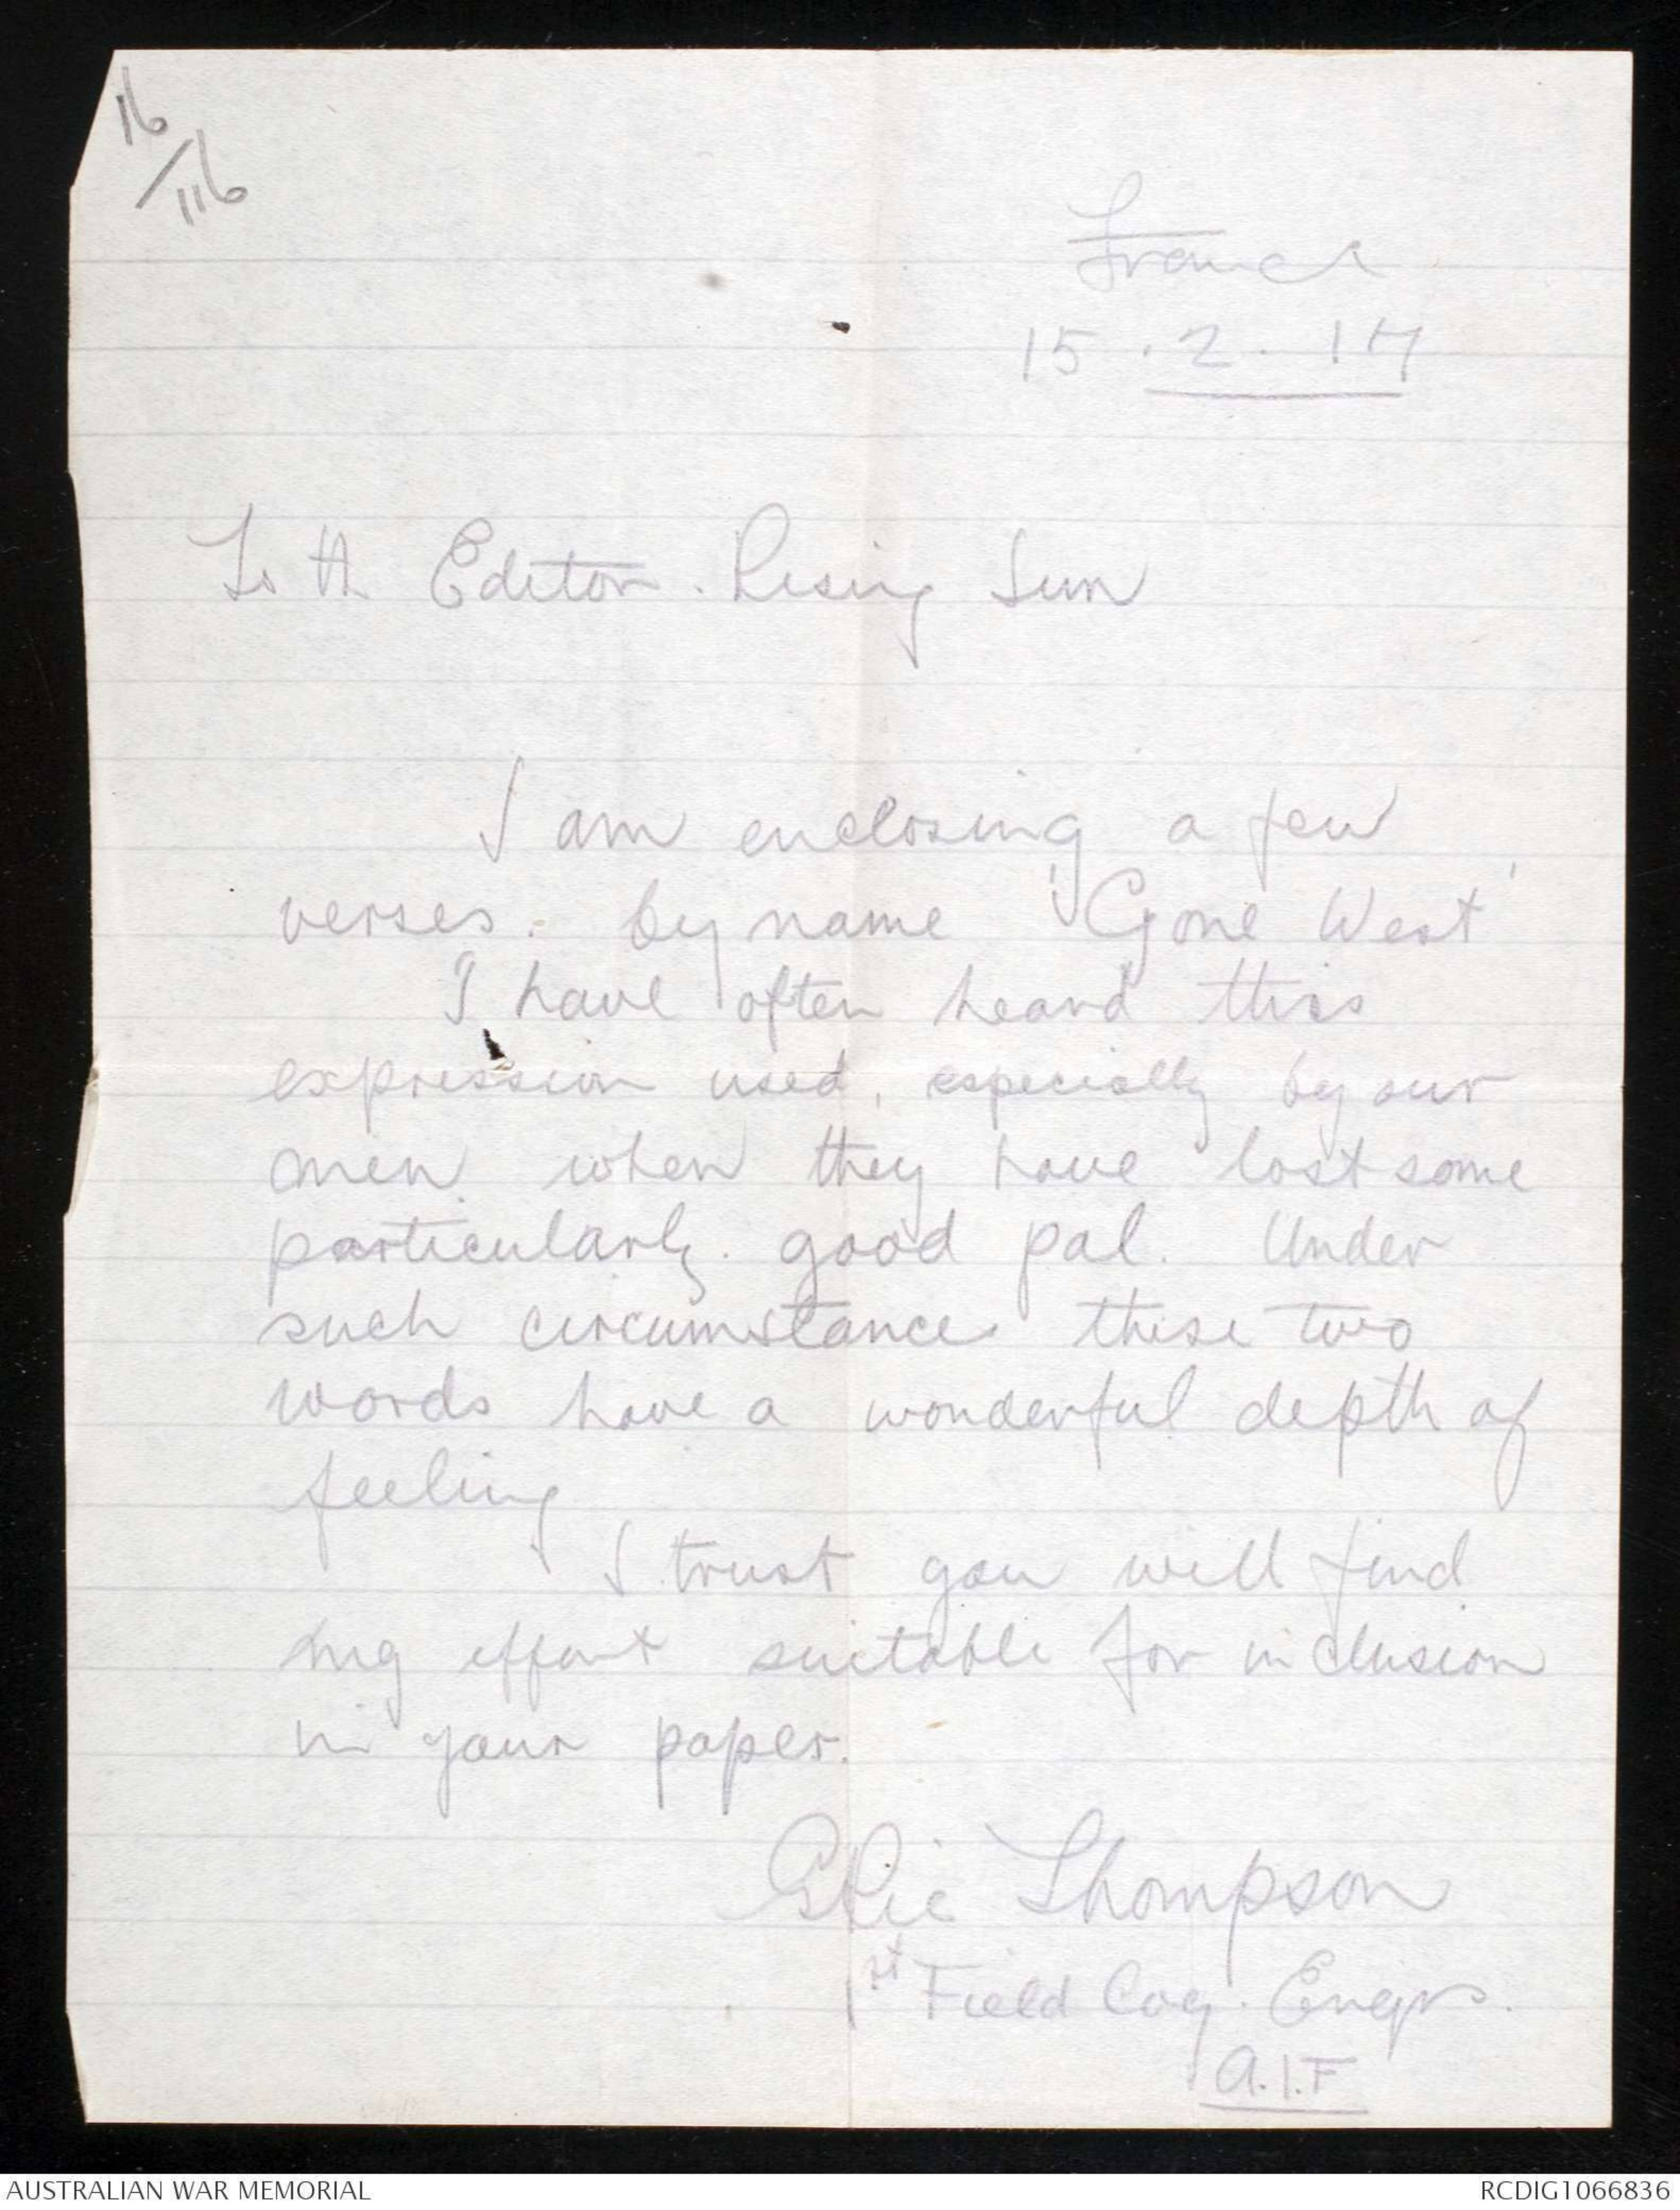 16
/116
France
15.2.17
To th Editor. Rising Sun
I am enclosing a few
verses. by name 'Gone West'
I have often heard this
expression used, especially by our
men. when they have lost some
particularly. good pal. Under
such circumstance these two
words have a wonderful depth of
feeling
I trust you will find
my effort suitable for inclusion
in your paper.
Thompson
1st Field Coy. Engrs.
A.I.F
AUSTRALIAN WAR MEMORIAL
RCDIG1066836